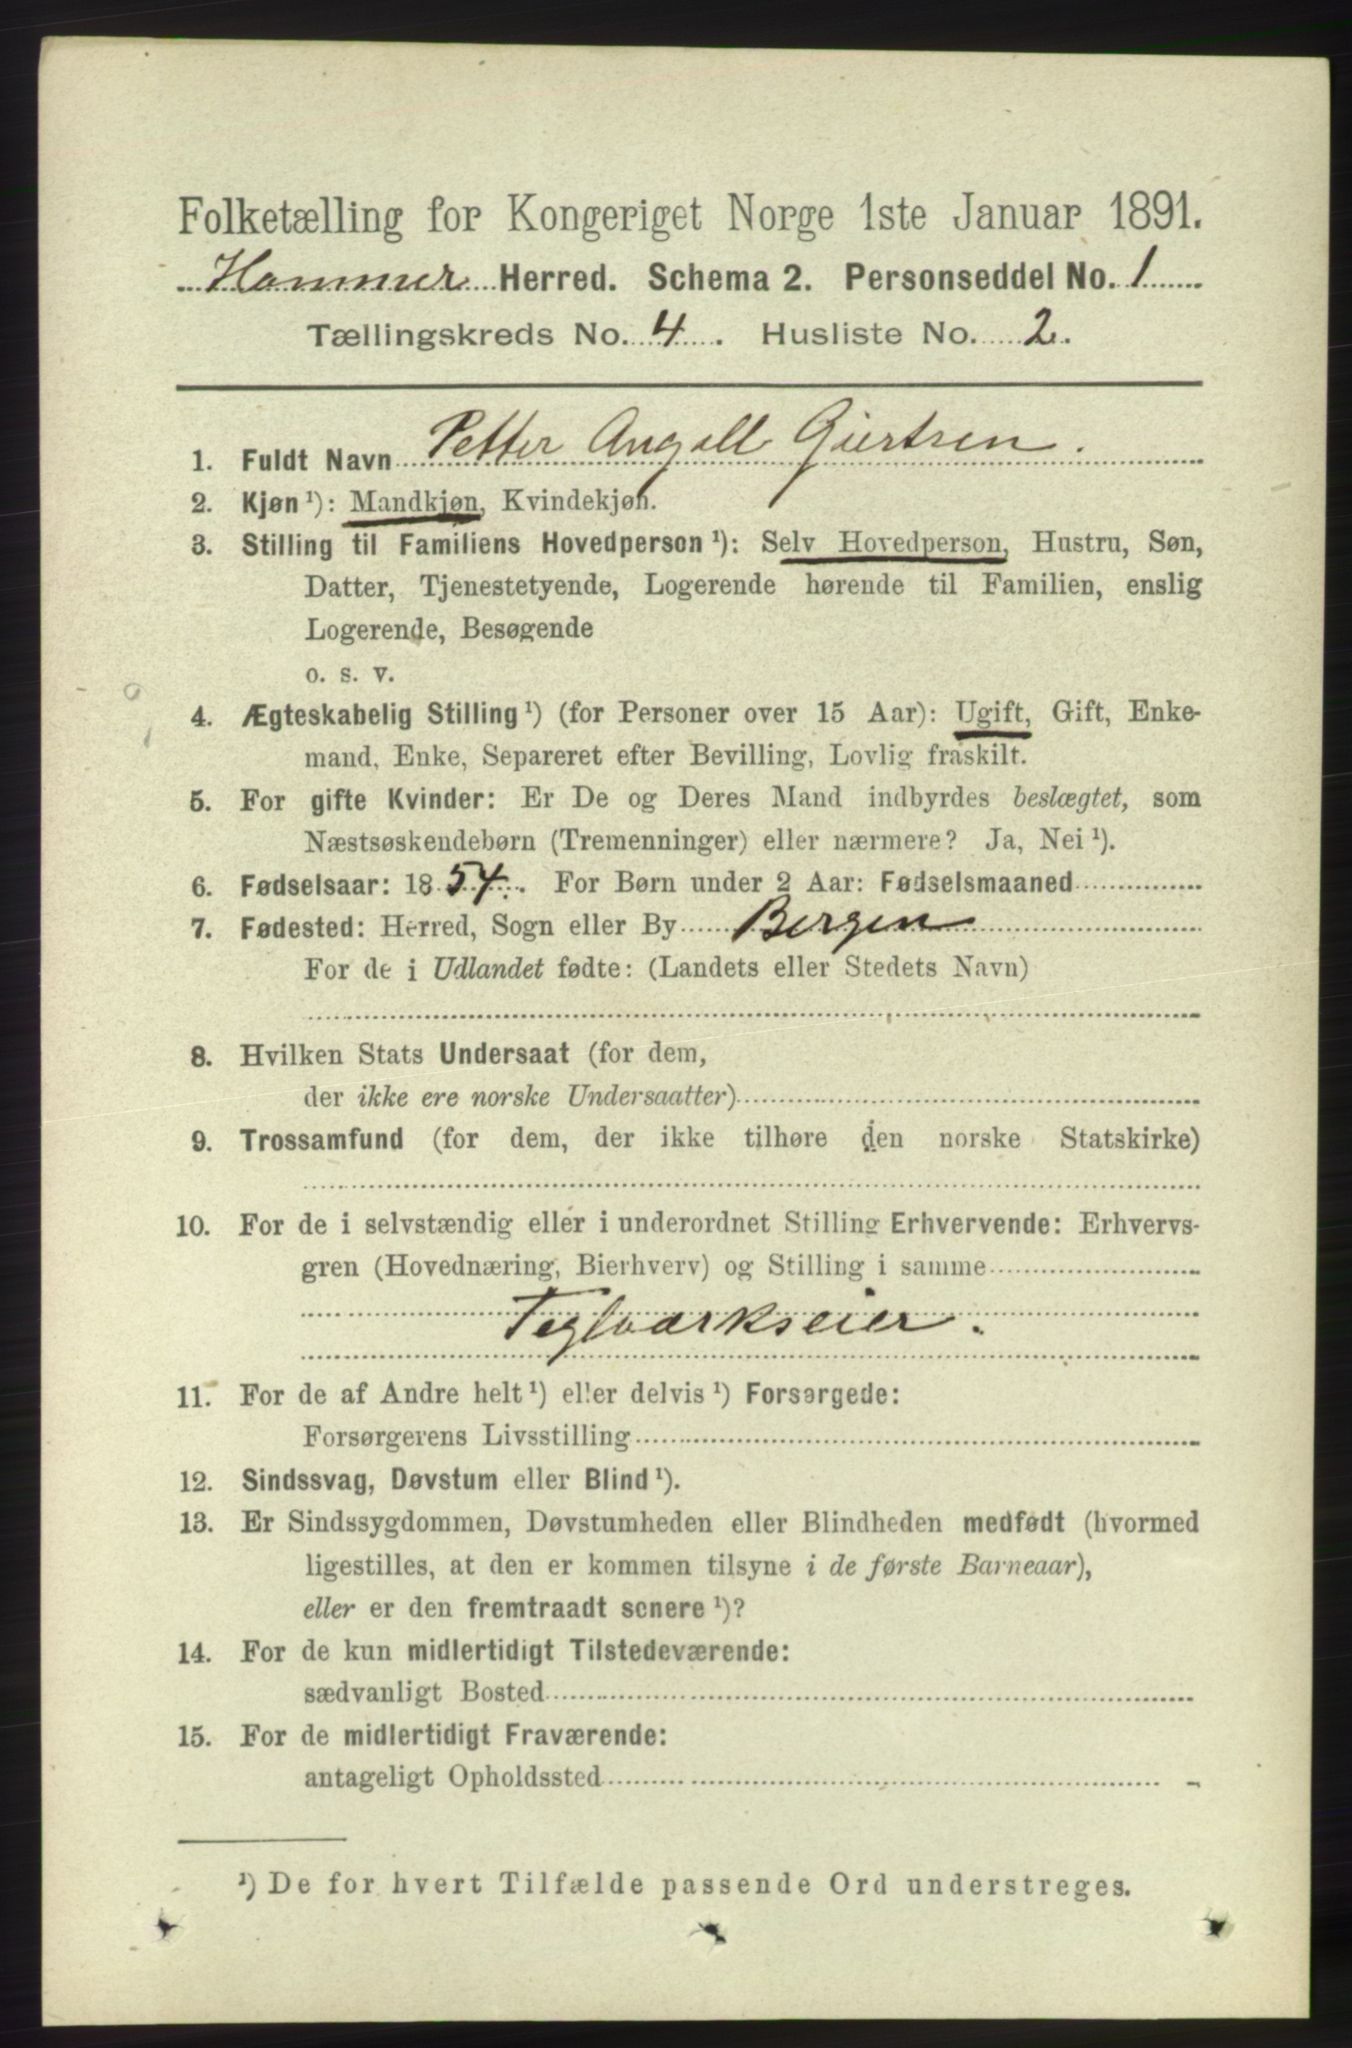 Folketælling for Kongeriget Norge 1ste Januar 1891.
Hammer Herred. Schema 2. Personseddel No. 1
Tællingskreds No. 4. Husliste No. 2.
1. Fuldt Navn Petter Angell Giertsen.
2. Kjøn ¹): Mandkjøn, Kvindekjøn.
3. Stilling til Familiens Hovedperson ¹): Selv Hovedperson, Hustru, Søn,
Datter, Tjenestetyende, Logerende hørende til Familien, enslig
Logerende, Besøgende
o. s. v.
4. Ægteskabelig Stilling ¹) (for Personer over 15 Aar): Ugift, Gift, Enke-
mand, Enke, Separeret efter Bevilling, Lovlig fraskilt.
5. For gifte Kvinder: Er De og Deres Mand indbyrdes beslægtet, som
Næstsøskendebørn (Tremenninger) eller nærmere? Ja, Nei ¹).
6. Fødselsaar: 1854. For Børn under 2 Aar: Fødselsmaaned
7. Fødested: Herred, Sogn eller By Bergen
For de i Udlandet fødte: (Landets eller Stedets Navn)
8. Hvilken Stats Undersaat (for dem,
der ikke ere norske Undersaatter)
9. Trossamfund (for dem, der ikke tilhøre den norske Statskirke)
10. For de i selvstændig eller i underordnet Stilling Erhvervende: Erhvervs-
gren (Hovednæring, Bierhverv) og Stilling i samme
Teglværkseier.
11. For de af Andre helt ¹) eller delvis ¹) Forsørgede:
Forsørgerens Livsstilling
12. Sindssvag, Døvstum eller Blind ¹).
13. Er Sindssygdommen, Døvstumheden eller Blindheden medfødt (hvormed
ligestilles, at den er kommen tilsyne i de første Barneaar),
eller er den fremtraadt senere ¹)?
14. For de kun midlertidigt Tilstedeværende:
sædvanligt Bosted
15. For de midlertidigt Fraværende:
antageligt Opholdssted
¹) De for hvert Tilfælde passende Ord understreges.